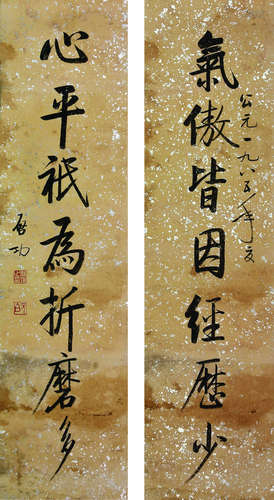 氣傲皆因經歷少
公元一九八五年夏
心平祇為折磨多
啟功